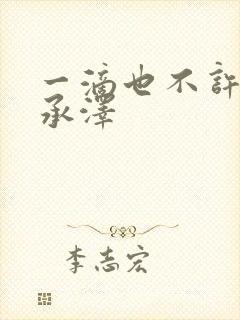 一滴也不許
承澤
李志宏